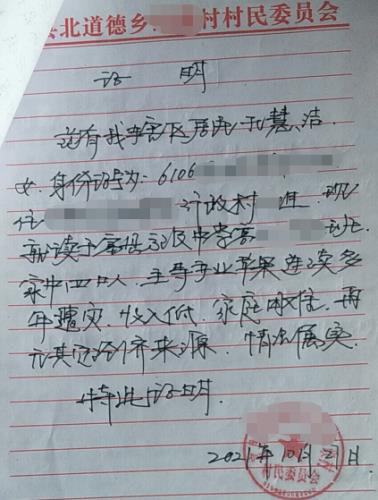 县北道德乡 村村民委员会
证 明
兹有我辖区居民 慧洁
女.身份证号为:6106
住 行政村 组.现
就读于 中学高 班.
家中四口人,主导产业苹果连续多
年遭灾.收入低.家庭困难.再
无其它经济来源.情况属实.
特此证明.
2021年10月21日.
村民委员会